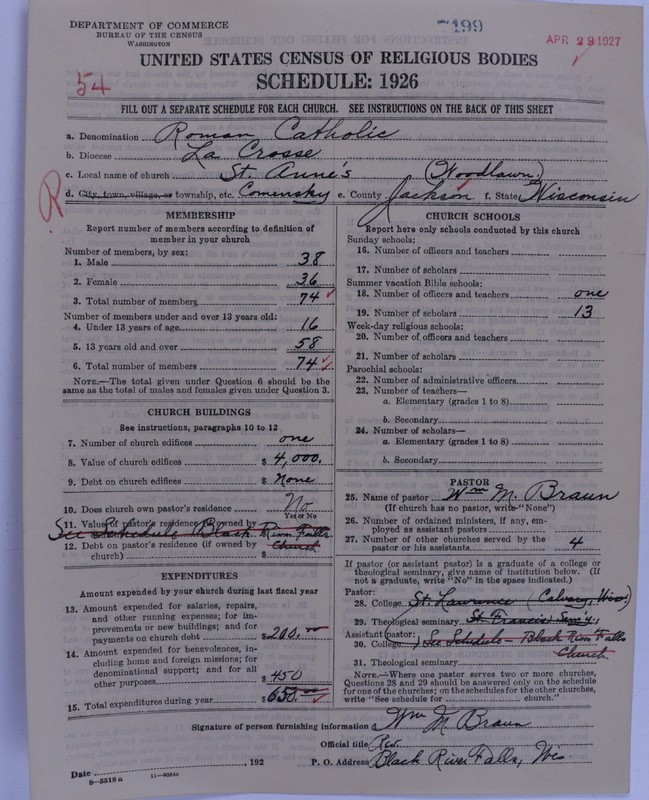 DEPARTMENT OF COMMERCE
BUREAU OF THE CENSUS
WASHINGTON
199
APR 29 1927
UNITED STATES CENSUS OF RELIGIOUS BODIES
SCHEDULE: 1926
54
FILL OUT A SEPARATE SCHEDULE FOR EACH CHURCH. SEE INSTRUCTIONS ON THE BACK OF THIS SHEET
a. Denomination Roman Catholic
b. Diocese La Crosse
c. Local name of church St. Anne's (Woodlawn)
d. City, town, village, or township, etc. Comensky e. County Jackson f. State Wisconsin
R
MEMBERSHIP
Report number of members according to definition of member in your church
Number of members, by sex:
1. Male 38
2. Female 36
3. Total number of members 74
Number of members under and over 13 years old:
4. Under 13 years of age 16
5. 13 years old and over 58
6. Total number of members 74
NOTE.—The total given under Question 6 should be the
same as the total of males and females given under Question 3.
CHURCH BUILDINGS
See instructions, paragraphs 10 to 12
7. Number of church edifices one
8. Value of church edifices $ 4,000.
9. Debt on church edifices $ None
10. Does church own pastor's residence No
Yes or No
11. Value of pastor's residence (if owned by
See Schedule Black River Falls
12. Debt on pastor's residence (if owned by Church
church) $
EXPENDITURES
Amount expended by your church during last fiscal year
13. Amount expended for salaries, repairs,
and other running expenses; for im-
provements or new buildings; and for
payments on church debt $ 200.00
14. Amount expended for benevolences, in-
cluding home and foreign missions; for
denominational support; and for all
other purposes $ 450
15. Total expenditures during year $ 650.00
CHURCH SCHOOLS
Report here only schools conducted by this church
Sunday schools:
16. Number of officers and teachers
17. Number of scholars
Summer vacation Bible schools:
18. Number of officers and teachers one
19. Number of scholars 13
Week-day religious schools:
20. Number of officers and teachers
21. Number of scholars
Parochial schools:
22. Number of administrative officers
23. Number of teachers—
a. Elementary (grades 1 to 8)
b. Secondary
24. Number of scholars—
a. Elementary (grades 1 to 8)
b. Secondary
PASTOR
25. Name of pastor Wm M. Braun
(If church has no pastor, write "None")
26. Number of ordained ministers, if any, em-
ployed as assistant pastors
27. Number of other churches served by the
pastor or his assistants 4
If pastor (or assistant pastor) is a graduate of a college or
theological seminary, give name of institution below. (If
not a graduate, write "No" in the space indicated.)
Pastor:
28. College St. Lawrence (Calvary, Wis.)
29. Theological seminary St. Francis Sem'y.
Assistant pastor:
30. College See Schedule - Black River Falls
Church.
31. Theological seminary
NOTE.—Where one pastor serves two or more churches,
Questions 28 and 29 should be answered only on the schedule
for one of the churches; on the schedules for the other churches,
write "See schedule for ........ church."
Signature of person furnishing information Wm M Braun
Official title Rev.
Date , 192 P. O. Address Black River Falls, Wis.
8—5518 a 11—9554a